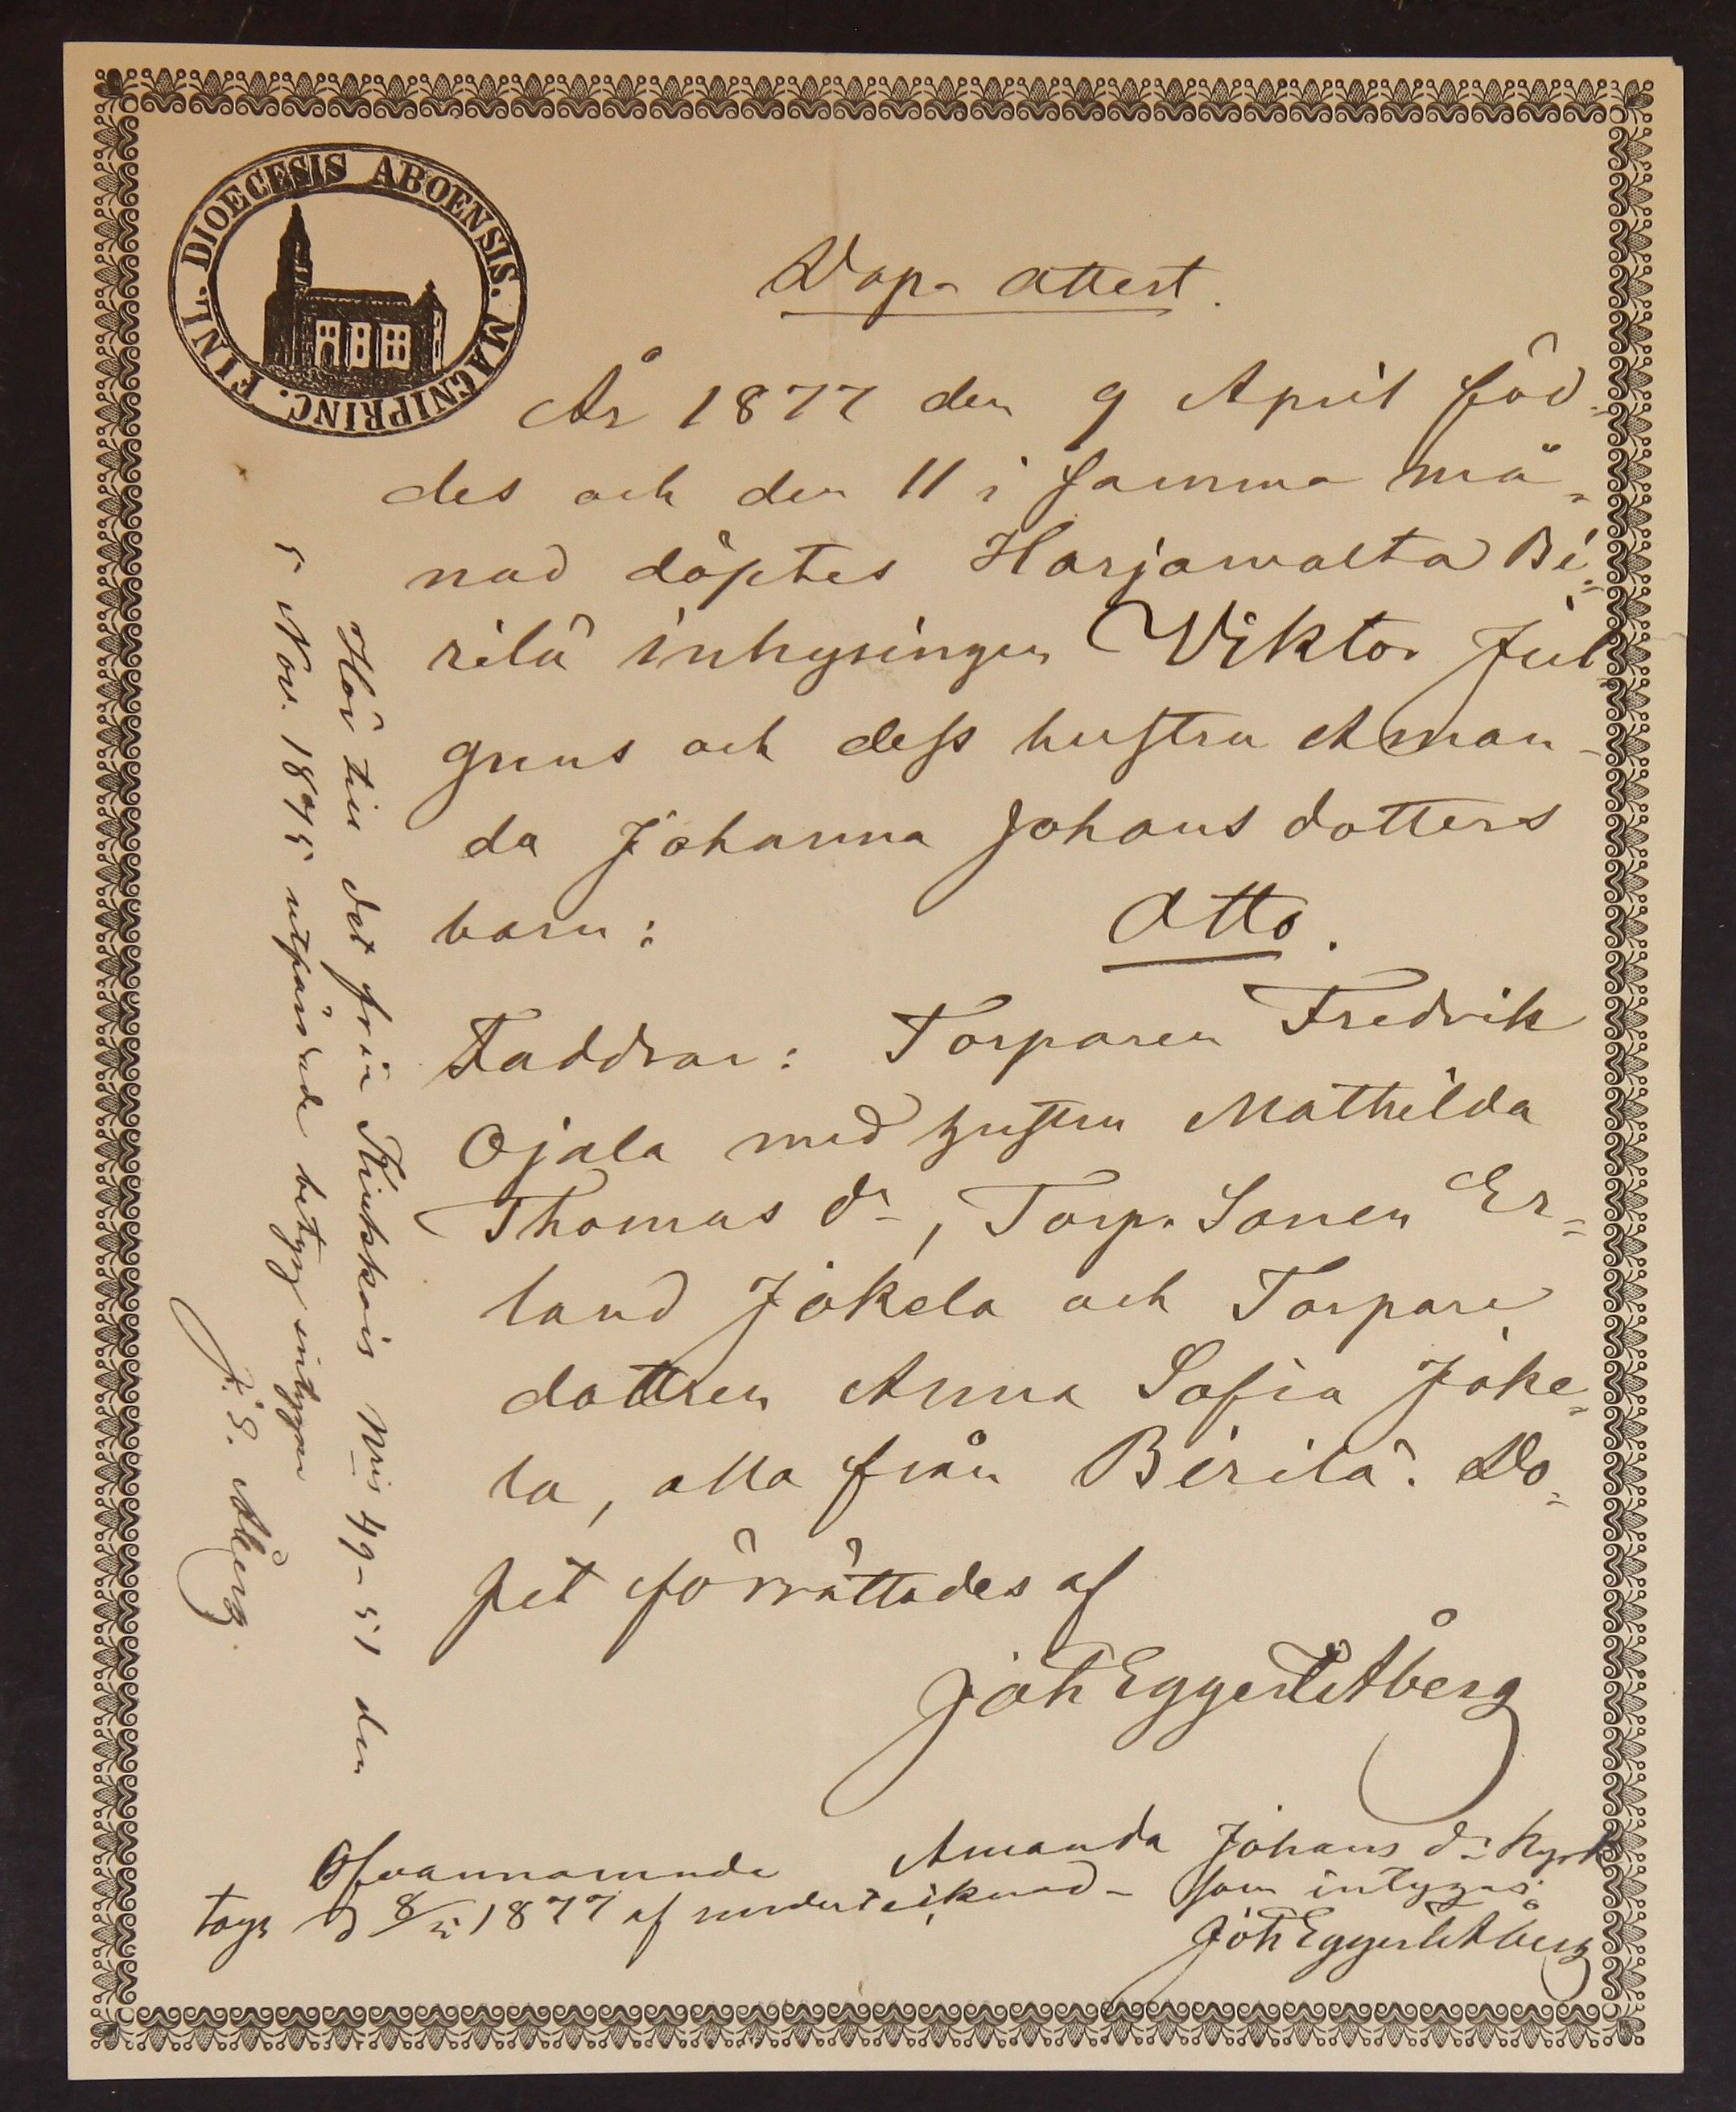 FINL. DIOECESIS ABOENSIS. MAGNIPRINC.
Dop- attest.
År 1877 den 9 April föd-
des och den 11 i samma må-
nad döptes Harjawalta Bi-
rilä inhysingen Viktor Jul
grens och dess hustru Aman-
da Johanna Johans dotters
barn: Otto.
Faddrar: Torparen Fredrik
Ojala med hustru Mathilda
Thomas dr, Torp. Sonen Er-
land Jokela och Torpare
dottren Anna Sofia Joke-
la, alla från Birilä. Do-
pet förrättades af
Joh Eggert Åberg
Ofvannämnde Amanda Johans dr kyrk
togs d 8/5 1877 af undertecknad - som intygas
Joh Eggert Åberg
Hör till det från Kiukkois Nris 49-51 den
5 Nov. 1875 utfärdade betyg intygar
J. E. Åberg.